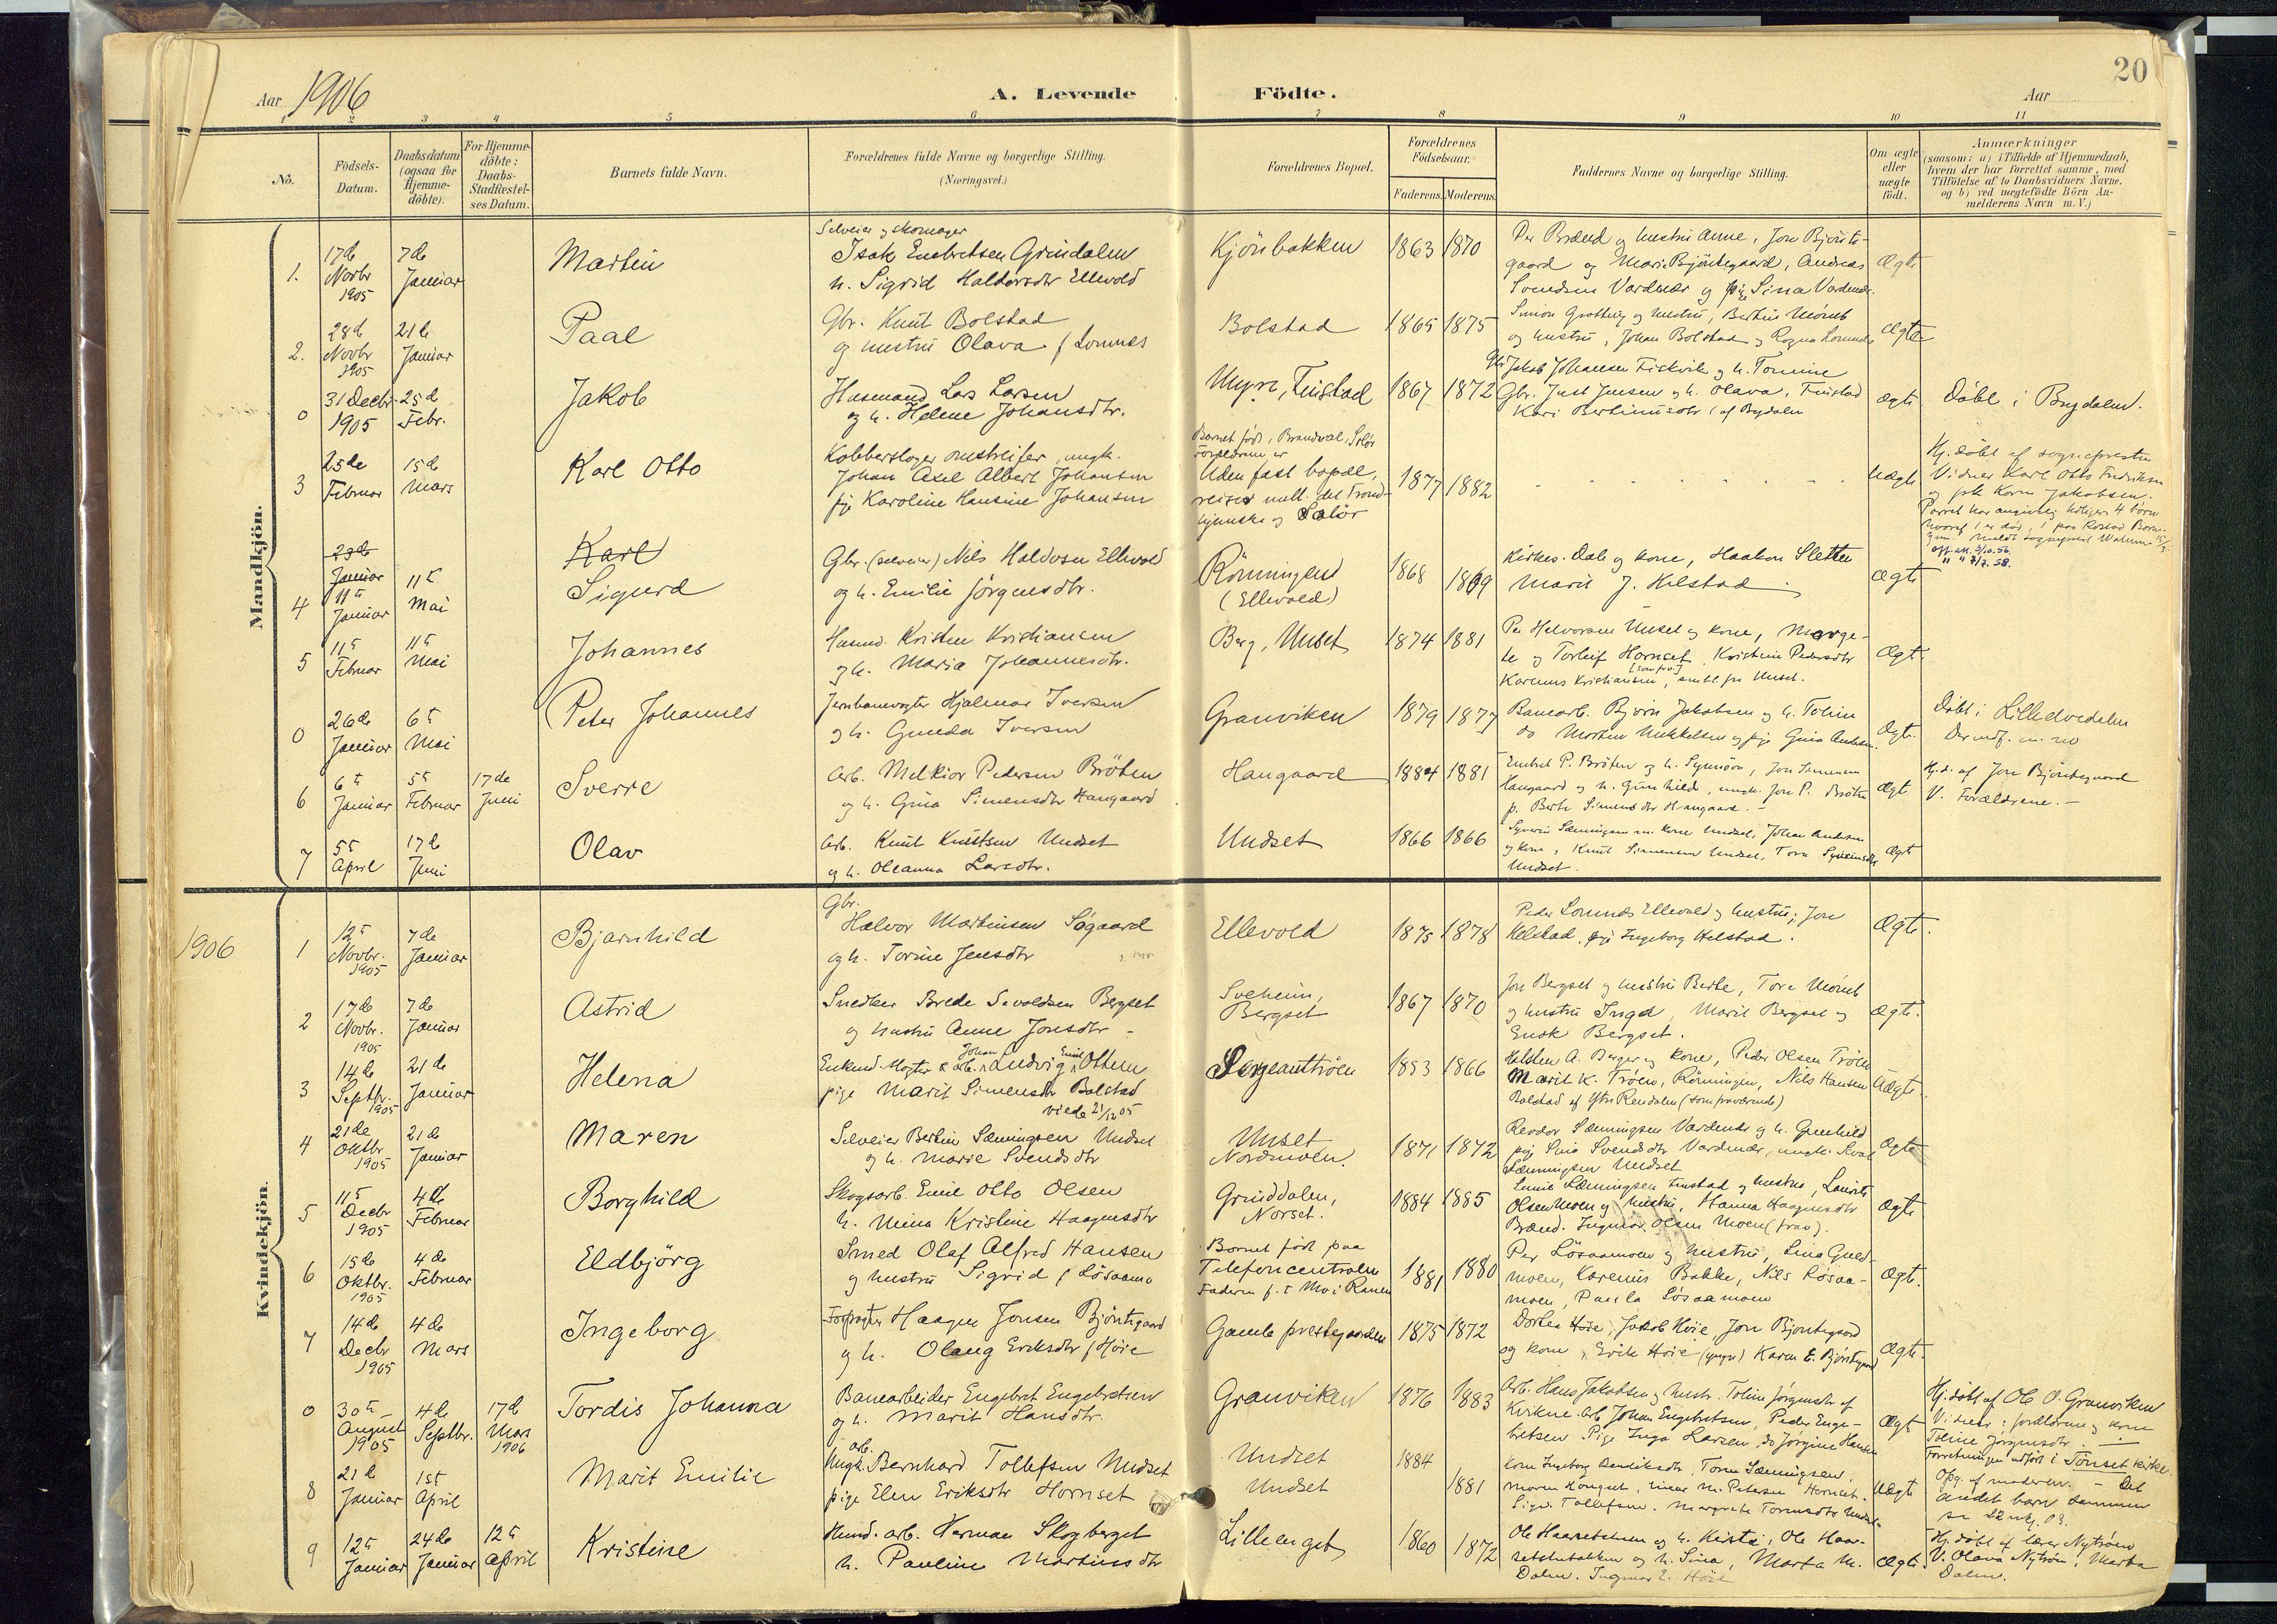 20
Aar 1906
A. Levende Födte.
Aar
1 2 3 4 5 6 7 8 9 10 11
Nö.
Födsels-Datum.
Daabsdatum (ogsaa for Hjemme-döbte).
For Hjemme-döbte: Daabs-Stadfæstel-ses Datum.
Barnets fulde Navn.
Forældrenes fulde Navne og borgerlige Stilling. (Næringsvei.)
Forældrenes Bopæl.
Forældrenes Födselsaar.
Faderens. Moderens.
Faddernes Navne og borgerlige Stilling.
Om ægte eller uægte födt.
Anmærkninger (saasom: a) i Tilfælde af Hjemmedaab, hvem der har forrettet samme, med Tilföielse af to Daabsvidners Navne, og b) ved uægtefödte Börn An-melderens Navn m. V.)
Mandkjön.
1. 17de Novbr 1905 7de Januar Martin
Selveier og skomager
Isak Engebretsen Grindalen
h. Sigrid Haldorsdtr Ellevold
Kjönbakken 1863 1870
Per Brænd og hustru Anne, Jon Bjönts-
gaard og Mari Bjöntegaard, Andreas
Svendsen Vardenær og pige Sina Vardenær.
Ægte
2. 28de Novbr 1905 21de Januar Paal
Gbr. Knut Bolstad
og hustru Olava f. Lomnes
Bolstad 1865 1875
og hustru, Johan Bolstad og Ragna Lomnes
Ægte
0 31 Decbr 1905 25de Febr. Jakob
Husmand Lars Larsen
og h. Helene Johansdtr.
Myre, Finstad 1867 1872
Gbr. Just Jensen og h. Olava, Finstad
Kari Bertinusdtr (af Rydalen
ægte
Döbt i Brydalen.
3 25de Februar 15de Mars Karl Otto
Kobberslager omstreifer, ungk.
Johan Axel Albert Johansen
pige Karoline Hansine Johansen
Barnet född i Brandval, Solör
Forældrene er
Uden fast bopæl,
reiser mell. det Trond-
hjemske og Solör
1877 1882
Uægte
Hj. döbt af sognepresten
Vidner Karl Otto Fredriksen
og Jakobsen.
Parret har angivelig tidligere 4 börn
hvoraf 1 er död, 1 paa
4 23de Januar 11te Januar 11te Mai Karl Sigurd
Gbr. (selveier) Nils Haldosen Ellevold
og h. Emilie Jörgensdtr.
Rönningen
(Ellevold)
1868 1869
Kirkes. Dale og kone, Haakon Sletten
Marit J. Helstad
Ægte
5 11te Februar 11te Mai Johannes
Husmd. Kristen Kristiansen
og h. Maria Johannesdtr.
Berg, Unset 1874 1881
Per Halvorsen Unset og kone, Marge-
te og Torleif Hornset, Kristine Pedersdtr
Karenus Kristiansen, samtl. fra Unset.
Ægte
0 26de Januar 6te Mai Peter Johannes
Jernbanevogter Hjalmar Iversen
og h. Gunda Iversen
Granviken 1879 1877
Banearb. Björn Jakobsen og h. Toline
do Morten Mikkelsen og pige Gina Andersen.
Ægte.
Döbt i Lilleelvedalen
6 6te Januar 5te Februar 17de Juni Sverre
Arb. Melkior Pedersen Bröten
og h. Gina Simensdtr Haugaard
Haugaard 1884 1881
Embret P. Bröten og h. Synnöva, Jon Simensen
Haugaard og h. Gunhild, ungk. Jon P. Bröten
p. Berte Simensdtr Haugaard. -
Ægte
Hj.d. af Jon Bjöntegaard
V. Forældrene. -
7 5te April 17de Juni Olav
Arb. Knut Knutsen Undset
og h. Oleanna Larsdtr.
Undset 1866 1866
Syverin Sæmingsen m. kone Undset, Johan Andersen
og kone, Knut Simensen Undset, Tora
Undset.
Ægte
1906
Kvindekjön.
1 12te Novbr. 1905 7de Januar Bjarnhild
Gbr.
Halvor Martinsen Sögaard
og h. Torine Jensdtr
Ellevold 1875 1878
Peder Lomnes Ellevold og hustru, Jon
Helstad, pige Ingeborg Helstad.
Ægte.
2 17de Novbr. 1905 7de Januar Astrid
Snedker Brede Sevaldsen Bergset
og hustru Anne Jonsdtr -
Solheim,
Bergset
1867 1870
Jon Bergset og hustru Berte, Tore Mömb
og hustru Inga, Marit Bergset og
Enok Bergset.
Ægte.
3 14de Septbr. 1905 21de Januar Helena
Enkemd. & arb. Johan Ludvig Emil Ottem
pige Marit Simensdtr Bolstad
viede 21/12 05
Sergeanttröen 1853 1866
Halsten A. Berger og kone, Peder Olsen Tröen
Marit K. Tröen, Rönningen, Nils Hansen
Bolstad af Ytre Rendalen (som fraværende)
Uægte
4 21de Oktbr 1905 21de Januar Maren
Selveier Bertin Sæmingsen Undset
og h. Marie Svendsdtr
Unset
Nordmoen.
1871 1872
Reodor Sæmingsen Vardenær og h. Gunhild
pige Sina Svendsdtr Vardenær, ungk.
Sæmingsen Undset
Ægte
5 11te Decbr 1905 4de Februar Borghild
Skogsarb. Emil Otto Olsen
h. Mina Kristine Haagensdtr
Grinddalen,
Norset.
1884 1885
Sæmingsen Finstad og hustru, Laurits
Olsen Moen og hustru, Hanna Haagensdtr
Brænd. Ingvar Olsen Moen (frav).
Ægte
6 15de Oktbr. 1905 4de Februar Eldbjörg
Smed Olaf Alfred Hansen
og hustru Sigrid f. Lösaamo
Barnet född paa
Telefoncentralen
Faderen f. i Mo i Ranen
1881 1880
Per Lösaamoen og hustru, Lina Guld-
moen, Karenus Bakke, Nils Lösaa-
moen, Paula Lösaamoen
Ægte.
7 14de Decbr 1905 4de Mars Ingeborg
Forpagter Haagen Jonsen Bjöntegaard
og h. Olaug Eriksdtr f. Höie
Gamle prestegaarden 1875 1872
Dortea Höie, Jakob Höie, Jon Bjöntegaard
og kone, Erik Höie (yngre) Karen E. Bjöntegaard
Ægte.
0 30te August 1905 4de Septbr. 17de Mars 1906 Tordis Johanna
Banearbeider Engebret Engebretsen
og h. Marit Hansdtr.
Granviken 1876 1883
Arb. Hans Jakobsen og hustr. Toline Jörgensdtr af
Kvikne. Arb. Johan Engebretsen, Peder Enge-
bretsen. Pige Inga Larsen, do Jörgine Hansen
Ægte
Hj. döbt af Ole O. Granviken
Vidner: forældrene og kone
Toline Jörgensdtr.
Forretningen udfört i Tönset kirke.
8 21de Januar 1ste April Marit Emilie
Ungk. arb. Bernhard Tollefsen Undset
pige Elen Eriksdtr Hornset
Undset 1884
Undset 1881
Kone Ingeborg Bendiksdtr, Tomas Sæmingsen,
Maren Kongset, Einar M. Petersen Hornset.
Sign. Tollefsen. Margrete Tomasdtr Undset
Uægte
Opg. af moderen. - Det
andet barn sammen
9 12te Januar 24de Januar 12te April Kristine
Husmd. arb. Herman Skogberget
h. Pauline Martinsdtr
Lillenget 1860 1872
Ole Haarsetstuen og h. Kirsti, Ole Haar-
setstubakken og h. Sina, Marta M.
Dalen. Ingmar E. Höie
Ægte
Hj. döbt af lærer Nyström
V. Olava Nyström, Marta
Dalen.